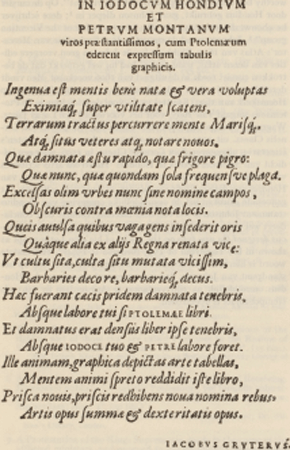 IN. IODOCVM HONDIVM
ET
PETRVM MONTANVM
viros præstantissimos, cum Ptolemæum
ederent expressum tabulis
graphicis.
Ingenua est mentis benè natæ & vera voluptas
Eximiaq́, super utilitate scatens,
Terrarum tractus percurrere mente Marisq́,
Atq́, situs veteres atq, notare novos.
Quæ damnata æstu rapido, quæ frigore pigro:
Quæ nunc, quæ quondam sola frequensve plaga.
Excelsas olim vrbes nunc sine nomine campos,
Obscuris contra mœnia nota locis.
Queis autulsa quibus vaga gens insederit oris
Quàque alia ex alijs Regna renata vice:
Vt cultu sita, culta situ mutata vicissim,
Barbaries decore, barbarieq́, decus.
Hæc fuerant cæcis pridem damnata tenebris,
Absque labore tui si PTOLEMÆE libri.
Et damnatus erat densis liber ipse tenebris,
Absque IODOCE tuo & PETRE labore foret.
Ille animam, graphica depictas arte tabellas,
Mentem animi spreto reddidit iste libro,
Prisca nouis, priscis redhibens nova nomina rebus.
Artis opus summæ & dexteritatis opus.
IACOBVS GRVTERVS.